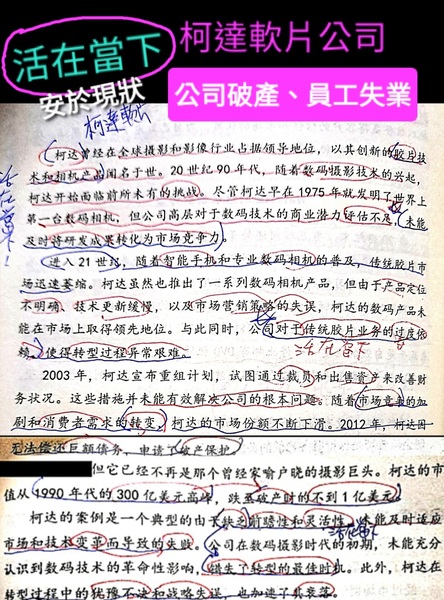 活在當下
柯達軟片公司
安於現狀
公司破產、員工失業
柯達軟片
活在當下!
柯达曾经在全球摄影和影像行业占据领导地位，以其创新的胶片技
术和相机产品闻名于世。20世纪90年代，随着数码摄影技术的兴起，
柯达开始面临前所未有的挑战。尽管柯达早在1975年就发明了世界上
第一台数码相机，但公司高层对于数码技术的商业潜力评估不足，未能
及时将研发成果转化为市场竞争力。
进入21世纪，随着智能手机和专业数码相机的普及，传统胶片市
场迅速萎缩。柯达虽然也推出了一系列数码相机产品，但由于产品定位
不明确、技术更新缓慢，以及市场营销策略的失误，柯达的数码产品未
能在市场上取得领先地位。与此同时，公司对于传统胶片业务的过度依
赖，使得转型过程异常艰难。
活在当下
2003年，柯达宣布重组计划，试图通过裁员和出售资产来改善财
务状况。这些措施并未能有效解决公司的根本问题。随着市场竞争的加
剧和消费者需求的转变，柯达的市场份额不断下滑。2012年，柯达因
无法偿还巨额债务，申请了破产保护。
但它已经不再是那个曾经家喻户晓的摄影巨头。柯达的市
值从1990年代的300亿美元高峰，跌至破产时的不到1亿美元。
柯达的案例是一个典型的由于缺乏前瞻性和灵活性，未能及时适应
市场和技术变革而导致的失败。公司在数码摄影时代的初期，未能充分
认识到数码技术的革命性影响，错失了转型的最佳时机。此外，柯达在
转型过程中的犹豫不决和战略失误，也加速了其衰落。